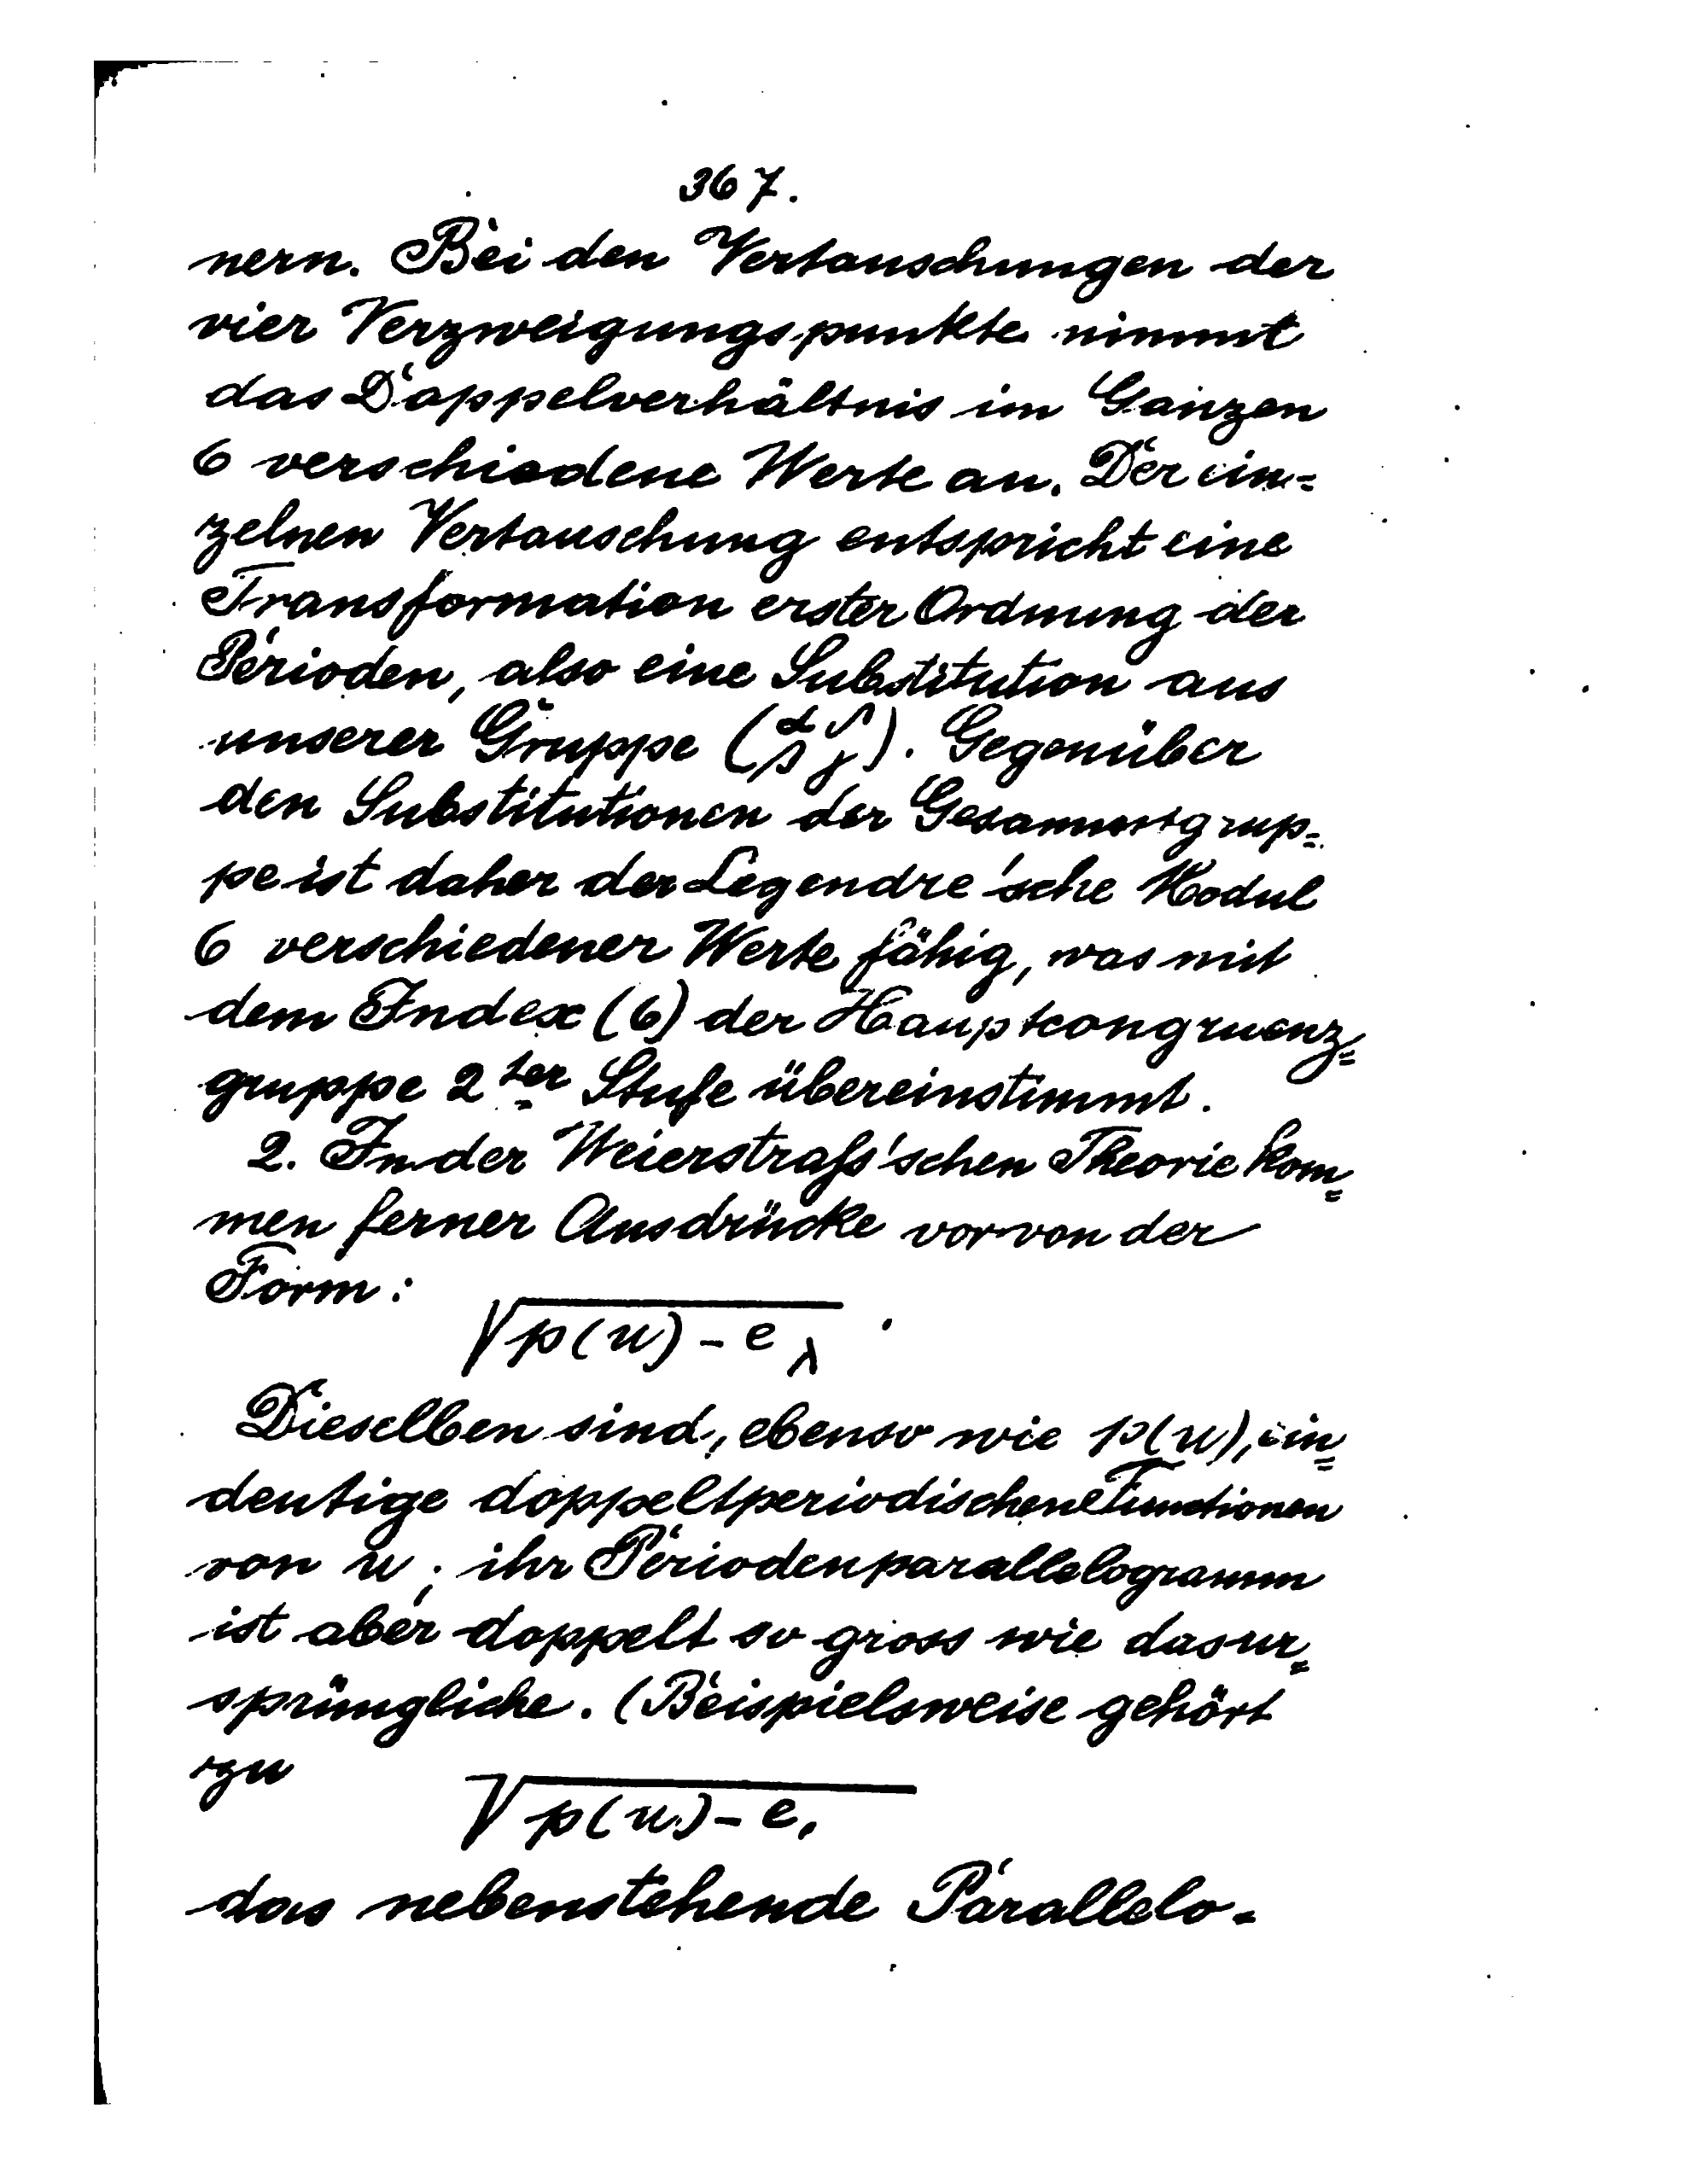 367.
nern. Bei den Vertauschungen der
vier Verzweigungspunkte nimmt
das Doppelverhältnis im Ganzen
6 verschiedene Werte an. Der ein=
zelnen Vertauschung entspricht eine
Transformation erster Ordnung der
Perioden, also eine Substitution aus
unserer Gruppe (α δ
β γ). Gegenüber
den Substitutionen der Gesammtgrup=
pe ist daher der Legendre'sche Modul
6 verschiedener Werte fähig, was mit
dem Index (6) der Hauptcongruenz=
gruppe 2ter Stufe übereinstimmt.
2. In der Weierstraß'schen Theorie kom=
men ferner Ausdrücke vor von der
Form:
√p(u) - e_λ .
Dieselben sind, ebenso wie p(u), ein=
deutige doppeltperiodischene Functionen
von u; ihr Periodenparallelogramm
ist aber doppelt so gross wie das ur=
sprüngliche. (Beispielsweise gehört
zu
√p(u) - e₁
das nebenstehende Parallelo=